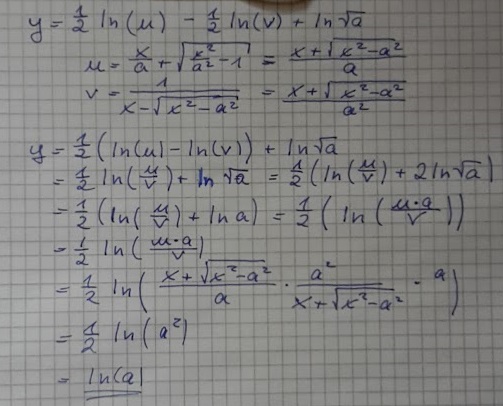 y = 1/2 ln(u) - 1/2 ln(v) + ln√a
u = x/a + √(x²/a² - 1) = (x + √(x² - a²))/a
v = 1/(x - √(x² - a²)) = (x + √(x² - a²))/a²
y = 1/2 (ln(u) - ln(v)) + ln√a
= 1/2 ln(u/v) + ln√a = 1/2 (ln(u/v) + 2 ln√a)
= 1/2 (ln(u/v) + ln a) = 1/2 (ln(u·a/v))
= 1/2 ln(u·a/v)
= 1/2 ln((x + √(x² - a²))/a · a²/(x + √(x² - a²)) · a)
= 1/2 ln(a²)
= ln(a)